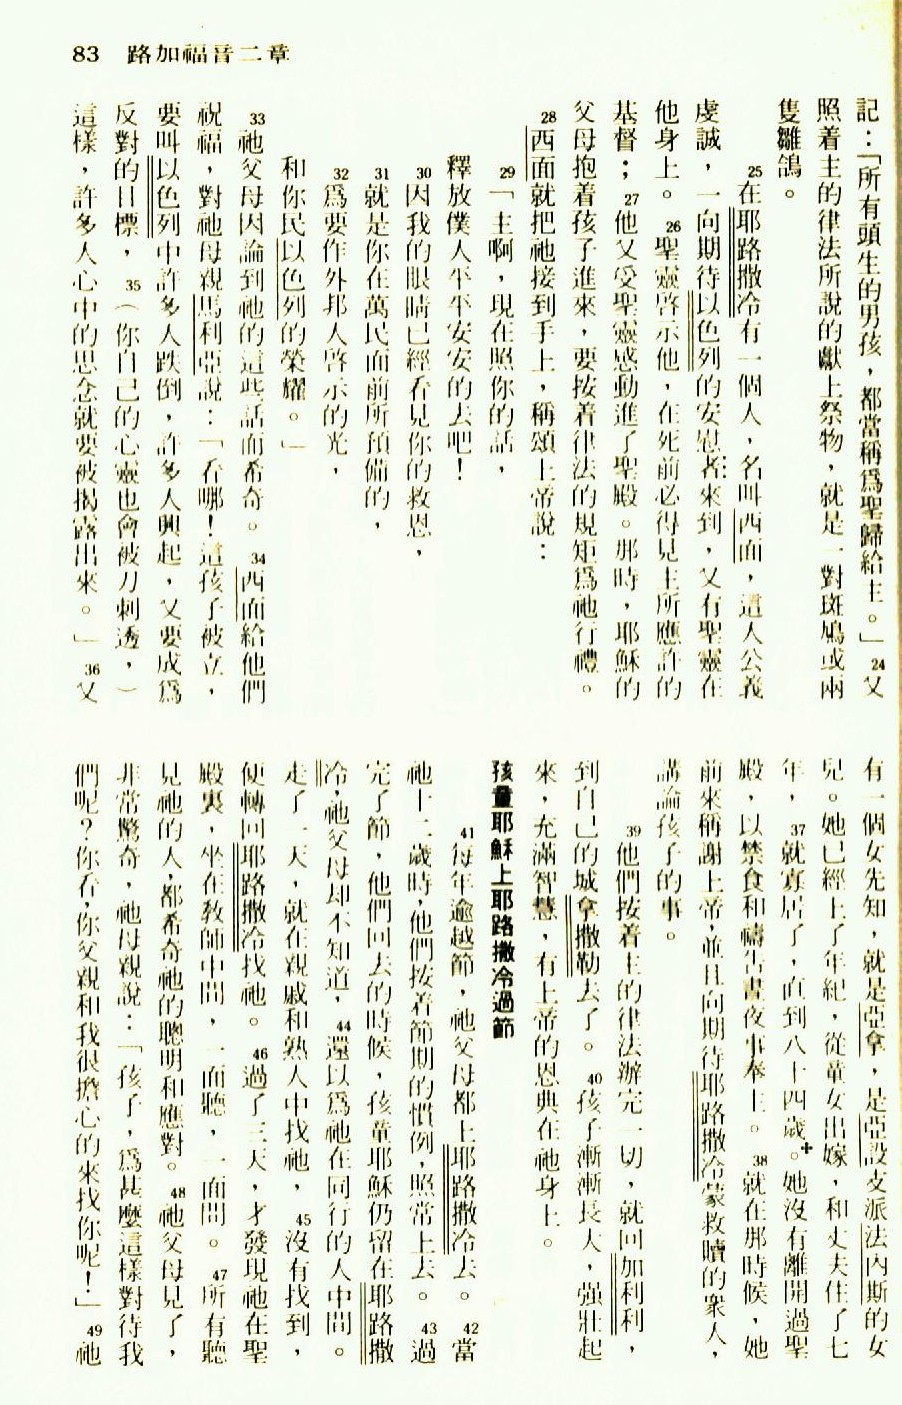 83 路加福音二章
記：「所有頭生的男孩，都當稱爲聖歸給主。」 24 又
照着主的律法所說的獻上祭物，就是一對斑鳩或兩
隻雛鴿。
25 在耶路撒冷有一個人，名叫西面，這人公義
虔誠，一向期待以色列的安慰者來到，又有聖靈在
他身上。 26 聖靈啓示他，在死前必得見主所應許的
基督； 27 他又受聖靈感動進了聖殿。那時，耶穌的
父母抱着孩子進來，要按着律法的規矩爲祂行禮。
28 西面就把祂接到手上，稱頌上帝說：
29 「主啊，現在照你的話，
釋放僕人平平安安的去吧！
30 因我的眼睛已經看見你的救恩，
31 就是你在萬民面前所預備的，
32 爲要作外邦人啓示的光，
和你民以色列的榮耀。」
33 祂父母因論到祂的這些話而希奇。 34 西面給他們
祝福，對祂母親馬利亞說：「看哪！這孩子被立，
要叫以色列中許多人跌倒，許多人興起，又要成爲
反對的目標， 35 （你自己的心靈也會被刀刺透，）
這樣，許多人心中的思念就要被揭露出來。」 36 又
有一個女先知，就是亞拿，是亞設支派法內斯的女
兒。她已經上了年紀，從童女出嫁，和丈夫住了七
年， 37 就寡居了，直到八十四歲✚。她沒有離開過聖
殿，以禁食和禱告晝夜事奉主。 38 就在那時候，她
前來稱謝上帝，並且向期待耶路撒冷蒙救贖的衆人，
講論孩子的事。
39 他們按着主的律法辦完一切，就回加利利，
到自己的城拿撒勒去了。 40 孩子漸漸長大，强壯起
來，充滿智慧，有上帝的恩典在祂身上。
孩童耶穌上耶路撒冷過節
41 每年逾越節，祂父母都上耶路撒冷去。 42 當
祂十二歲時，他們按着節期的慣例，照常上去。 43 過
完了節，他們回去的時候，孩童耶穌仍留在耶路撒
冷，祂父母却不知道， 44 還以爲祂在同行的人中間。
走了一天，就在親戚和熟人中找祂， 45 沒有找到，
便轉回耶路撒冷找祂。 46 過了三天，才發現祂在聖
殿裏，坐在教師中間，一面聽，一面問。 47 所有聽
見祂的人，都希奇祂的聰明和應對。 48 祂父母見了，
非常驚奇，祂母親說：「孩子，爲甚麼這樣對待我
們呢？你看，你父親和我很擔心的來找你呢！」 49 祂